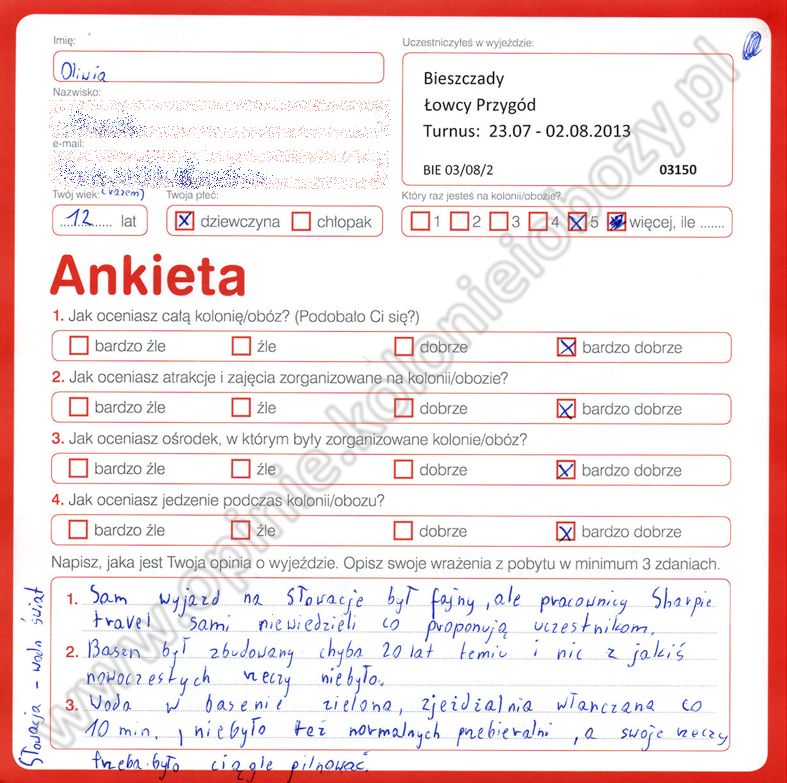 Imię:
Oliwia
Nazwisko:
e-mail:
Twój wiek: (razem)
12 lat
Twoja płeć:
dziewczyna chłopak
Uczestniczyłeś w wyjeździe:
Bieszczady
Łowcy Przygód
Turnus: 23.07 - 02.08.2013
BIE 03/08/2 03150
Który raz jesteś na kolonii/obozie?
1 2 3 4 5 więcej, ile .......
Ankieta
1. Jak oceniasz całą kolonię/obóz? (Podobało Ci się?)
bardzo źle źle dobrze bardzo dobrze
2. Jak oceniasz atrakcje i zajęcia zorganizowane na kolonii/obozie?
bardzo źle źle dobrze bardzo dobrze
3. Jak oceniasz ośrodek, w którym były zorganizowane kolonie/obóz?
bardzo źle źle dobrze bardzo dobrze
4. Jak oceniasz jedzenie podczas kolonii/obozu?
bardzo źle źle dobrze bardzo dobrze
Napisz, jaka jest Twoja opinia o wyjeździe. Opisz swoje wrażenia z pobytu w minimum 3 zdaniach.
1. Sam wyjazd na Słowacje był fajny, ale pracownicy Sharpie
travel sami niewiedzieli co proponują uczestnikom.
2. Basen był zbudowany chyba 20 lat temiu i nic z jakiś
nowoczestych rzeczy niebyło.
3. Woda w basenie zielona, zjeżdżalnia włanczana co
10 min., niebyło też normalnych przebieralni, a swoje rzeczy
trzeba było ciągle pilnować.
Słowacja - wodn świat
www.opinie.kolonieiobozy.pl